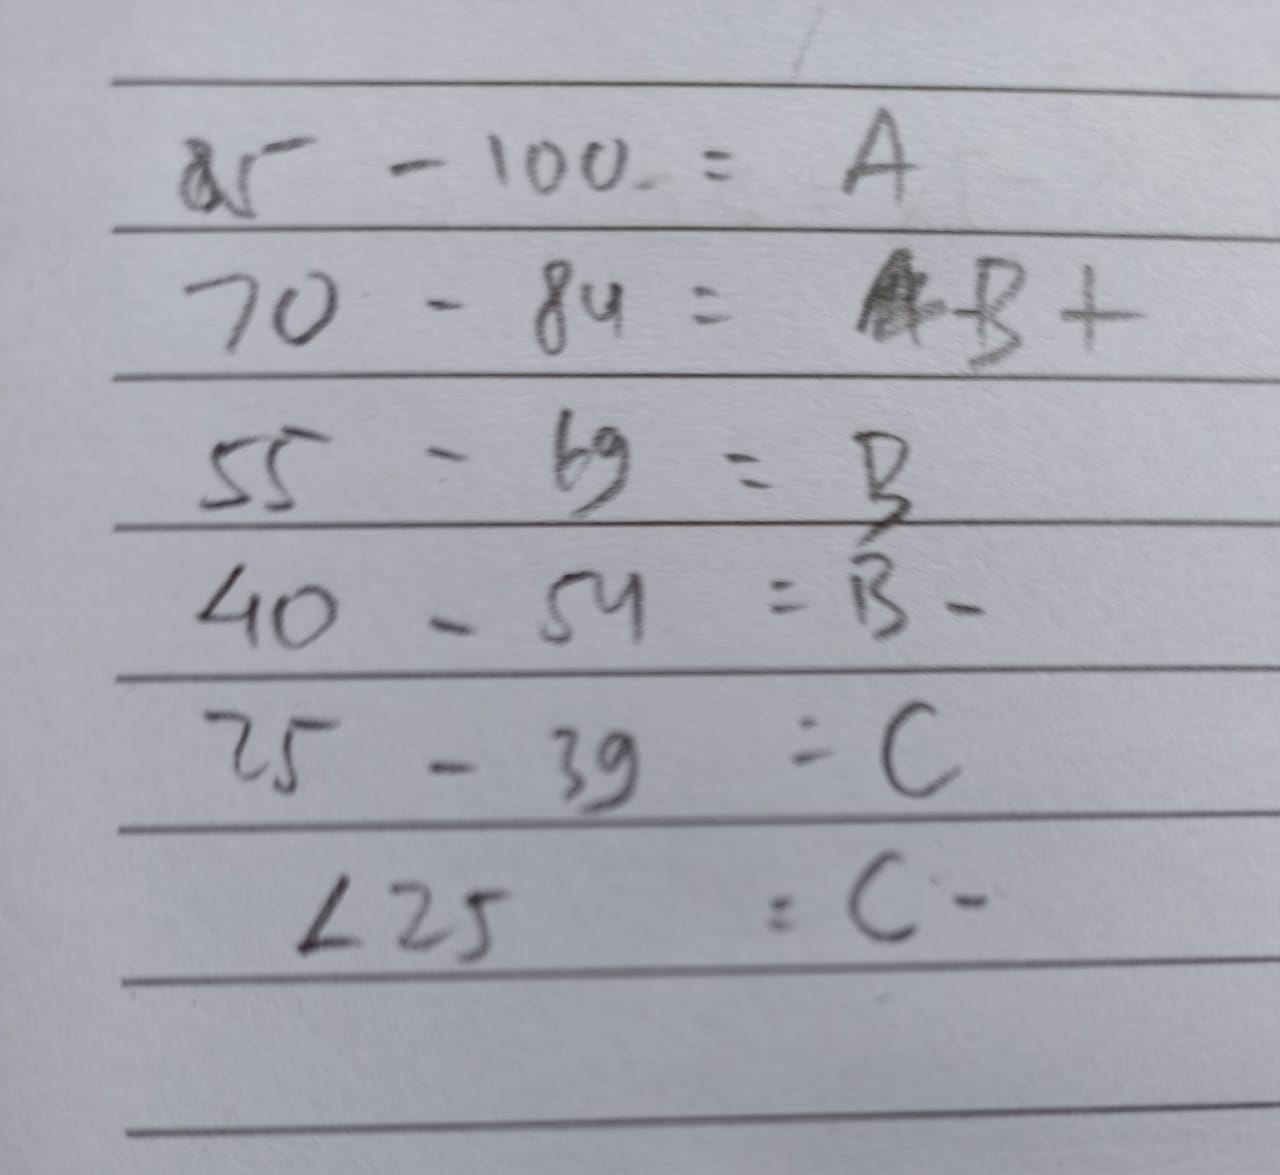 85 - 100 = A
70 - 84 = B+
55 - 69 = B
40 - 54 = B-
25 - 39 = C
<25 = C-